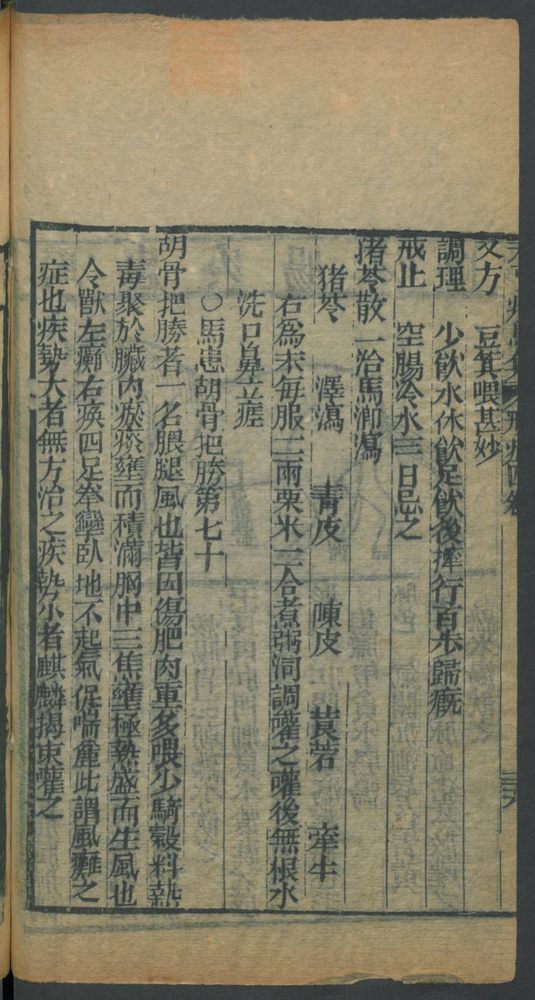 又方　豆箕喂甚妙
調理　少飲水休飲足飲後摔行百步歸厩
戒止　空腸冷水三日忌之
猪苓散　治馬漷瀉
猪苓　澤瀉　青皮　陳皮　莨菪　牽牛
右爲末每服二兩粟米二合煮粥同調灌之灌後無根水
洗口鼻差
○馬患胡骨把胯第七十
胡骨把胯者一名腲腿風也皆因傷肥肉重多喂少騎穀料熱
毒聚於臟内瘀痰壅而積滿胸中三焦壅極熱盛而生風也
令獸左癱右瘓四足拳攣臥地不起氣促喘麄此謂風癱之
症也疾勢大者無方治之疾勢小者麒麟揭東灌之